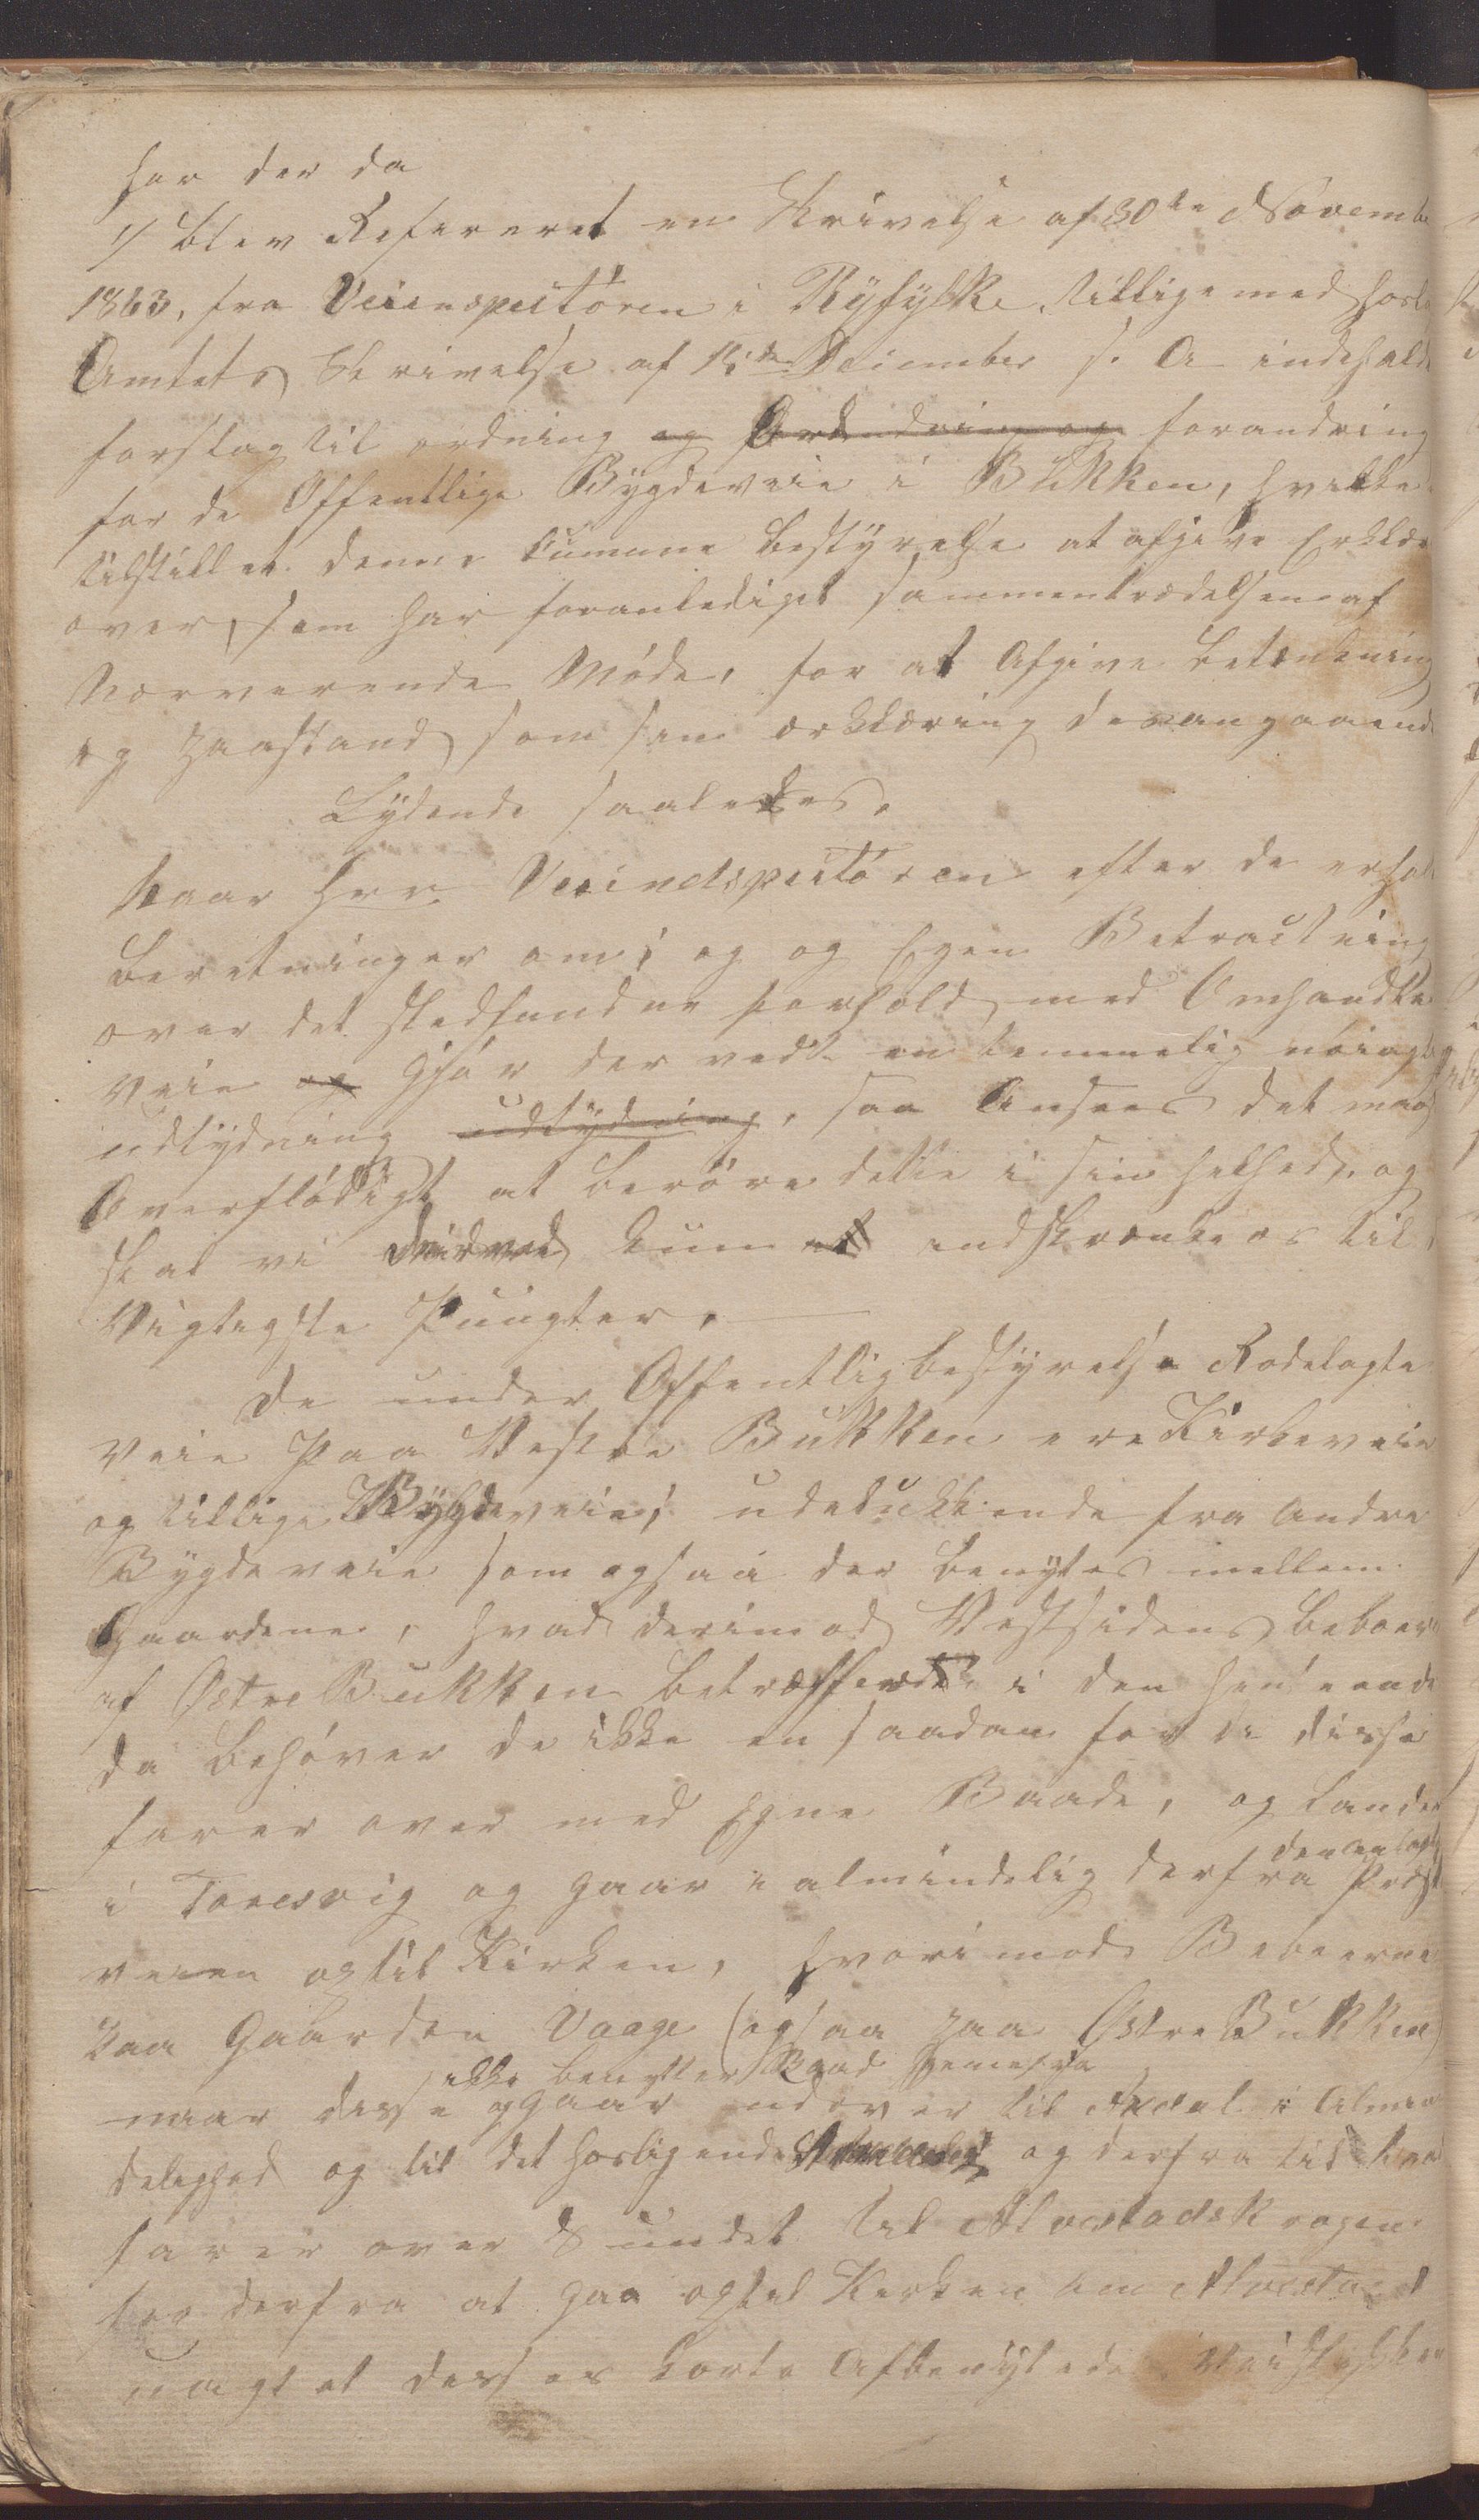 har der da
1/ blev Refereret en Skrivelse af 30te Novembe
1863, fra Veienspectóren i Ryfylke, tillige med hosl
Amtets Skrivelse af 15de December s. A indehold
forslag til ordning og forandring
for de Offentlige Bygdeveie i Bukken, hvilke
tilstillet denne Cumune bestyrelse at afgive Erklæ
over, som har foranlediget sammentrædelsen af
Nærverende Móde, for at Afgive betænkning
og paastand som sin erklæring desangaaende
Lydende saaledes.
Naar Herr Veiindspectóren efter de erhol
beretninger om, og og Egen Betractning
over det stedfundne forhold med Omhandle
Veie og Gjór der vedk en temmelig nóiagtig
udtydning udtydning, saa Ansees det maa
Overflódigt at beróre dette i sin helhed, og
skal vi kun indskrænke os til
Vigtigste Puugter.
De under Offentlig bestyrelse Rodelagte
Veie paa Vestre Bukken ere Kirkeveie
og tillige Bygdeveie, udelukkende fra Andre
Bygdeveie som ogsaa der benyttes mellem
Gaardene, hvad derimod Vestsidens beboere
af Østre Bukken betræffende i den henseende
da behóver de ikke en saadan for de disse
farer over med Egne Baade, og lander
i Toresvig og gaar i almindelig derfra den anlagte Præst
veien og til Kirken, hvorimod Beboerne
paa Gaarden Vaage (ogsaa paa Østre Bukken)
naar disse ikke benytter Baad hjemefra
gaar udover til i Almin
delighed og til det hosligende og derfra til
farer over Sundet til Alvestadkrogen
for derfra at gaa og til Kirken om Alvestad
uagtet disses korte Afbenytede Veistykker